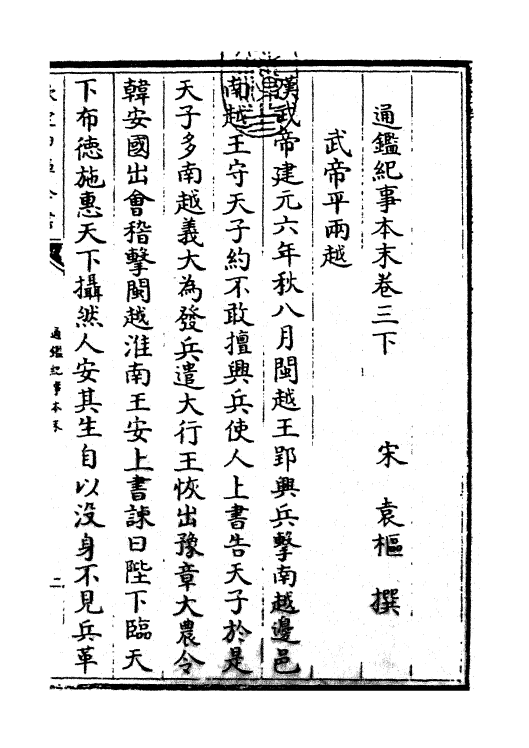 通鑑紀事本末卷三下
宋 袁樞 撰
武帝平兩越
漢武帝建元六年秋八月閩越王郢興兵擊南越邊邑
南越王守天子約不敢擅興兵使人上書告天子於是
天子多南越義大為發兵遣大行王恢出豫章大農令
韓安國出會稽擊閩越淮南王安上書諫曰陛下臨天
下布德施惠天下攝然人安其生自以没身不見兵革
通鑑紀事本末
二